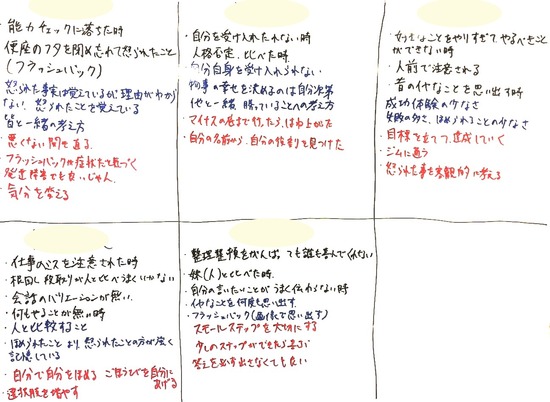 ・能力チェックに落ちた時
便座のフタを閉め忘れて怒られたこと
(フラッシュバック)
怒られた事実は覚えているが理由がわからない 怒られたことを覚えている
皆と一緒の考え方
・悪くない間を直る
・フラッシュバックは症状だと気づく
発達障害でも良いじゃん。
・気分を変える
・自分を受け入れられない時
人格否定、比べた時
・自分自身を受け入れられない
物事の幸せを決めるのは自分次第
他と一緒 勝っていることへの考え方
マイナスの底まで行ったら、はね上がった
・自分の名前から、自分の役割を見つけた
・好きなことをやりすぎてやるべきこと
ができない時
・人前で注意される
・昔のイヤなことを思い出す時
成功体験の少なさ
失敗の多さ、ほめられることの少なさ
・目標を立てて、達成していく
・ジムに通う
・怒られた事を客観的に考える
・仕事のミスを注意された時
・根回し、段取りが人と比べうまくいかない
・会話のバリエーションが無い
・何もやることが無い時
・人と比較すること
・ほめられたことより、怒られたことの方が強く
記憶している
・自分で自分をほめる ごほうびを自分に
あげる
・選択肢を増やす
・整理整頓をがんばっても誰も喜んでくれない
・妹(人)と比べた時
・自分の言いたいことがうまく伝わらない時
・イヤなことを何度も思い出す
・フラッシュバック(画像で思い出す)
スモールステップを大切にする
少しのステップができたら喜ぶ
答えを必ず出さなくても良い